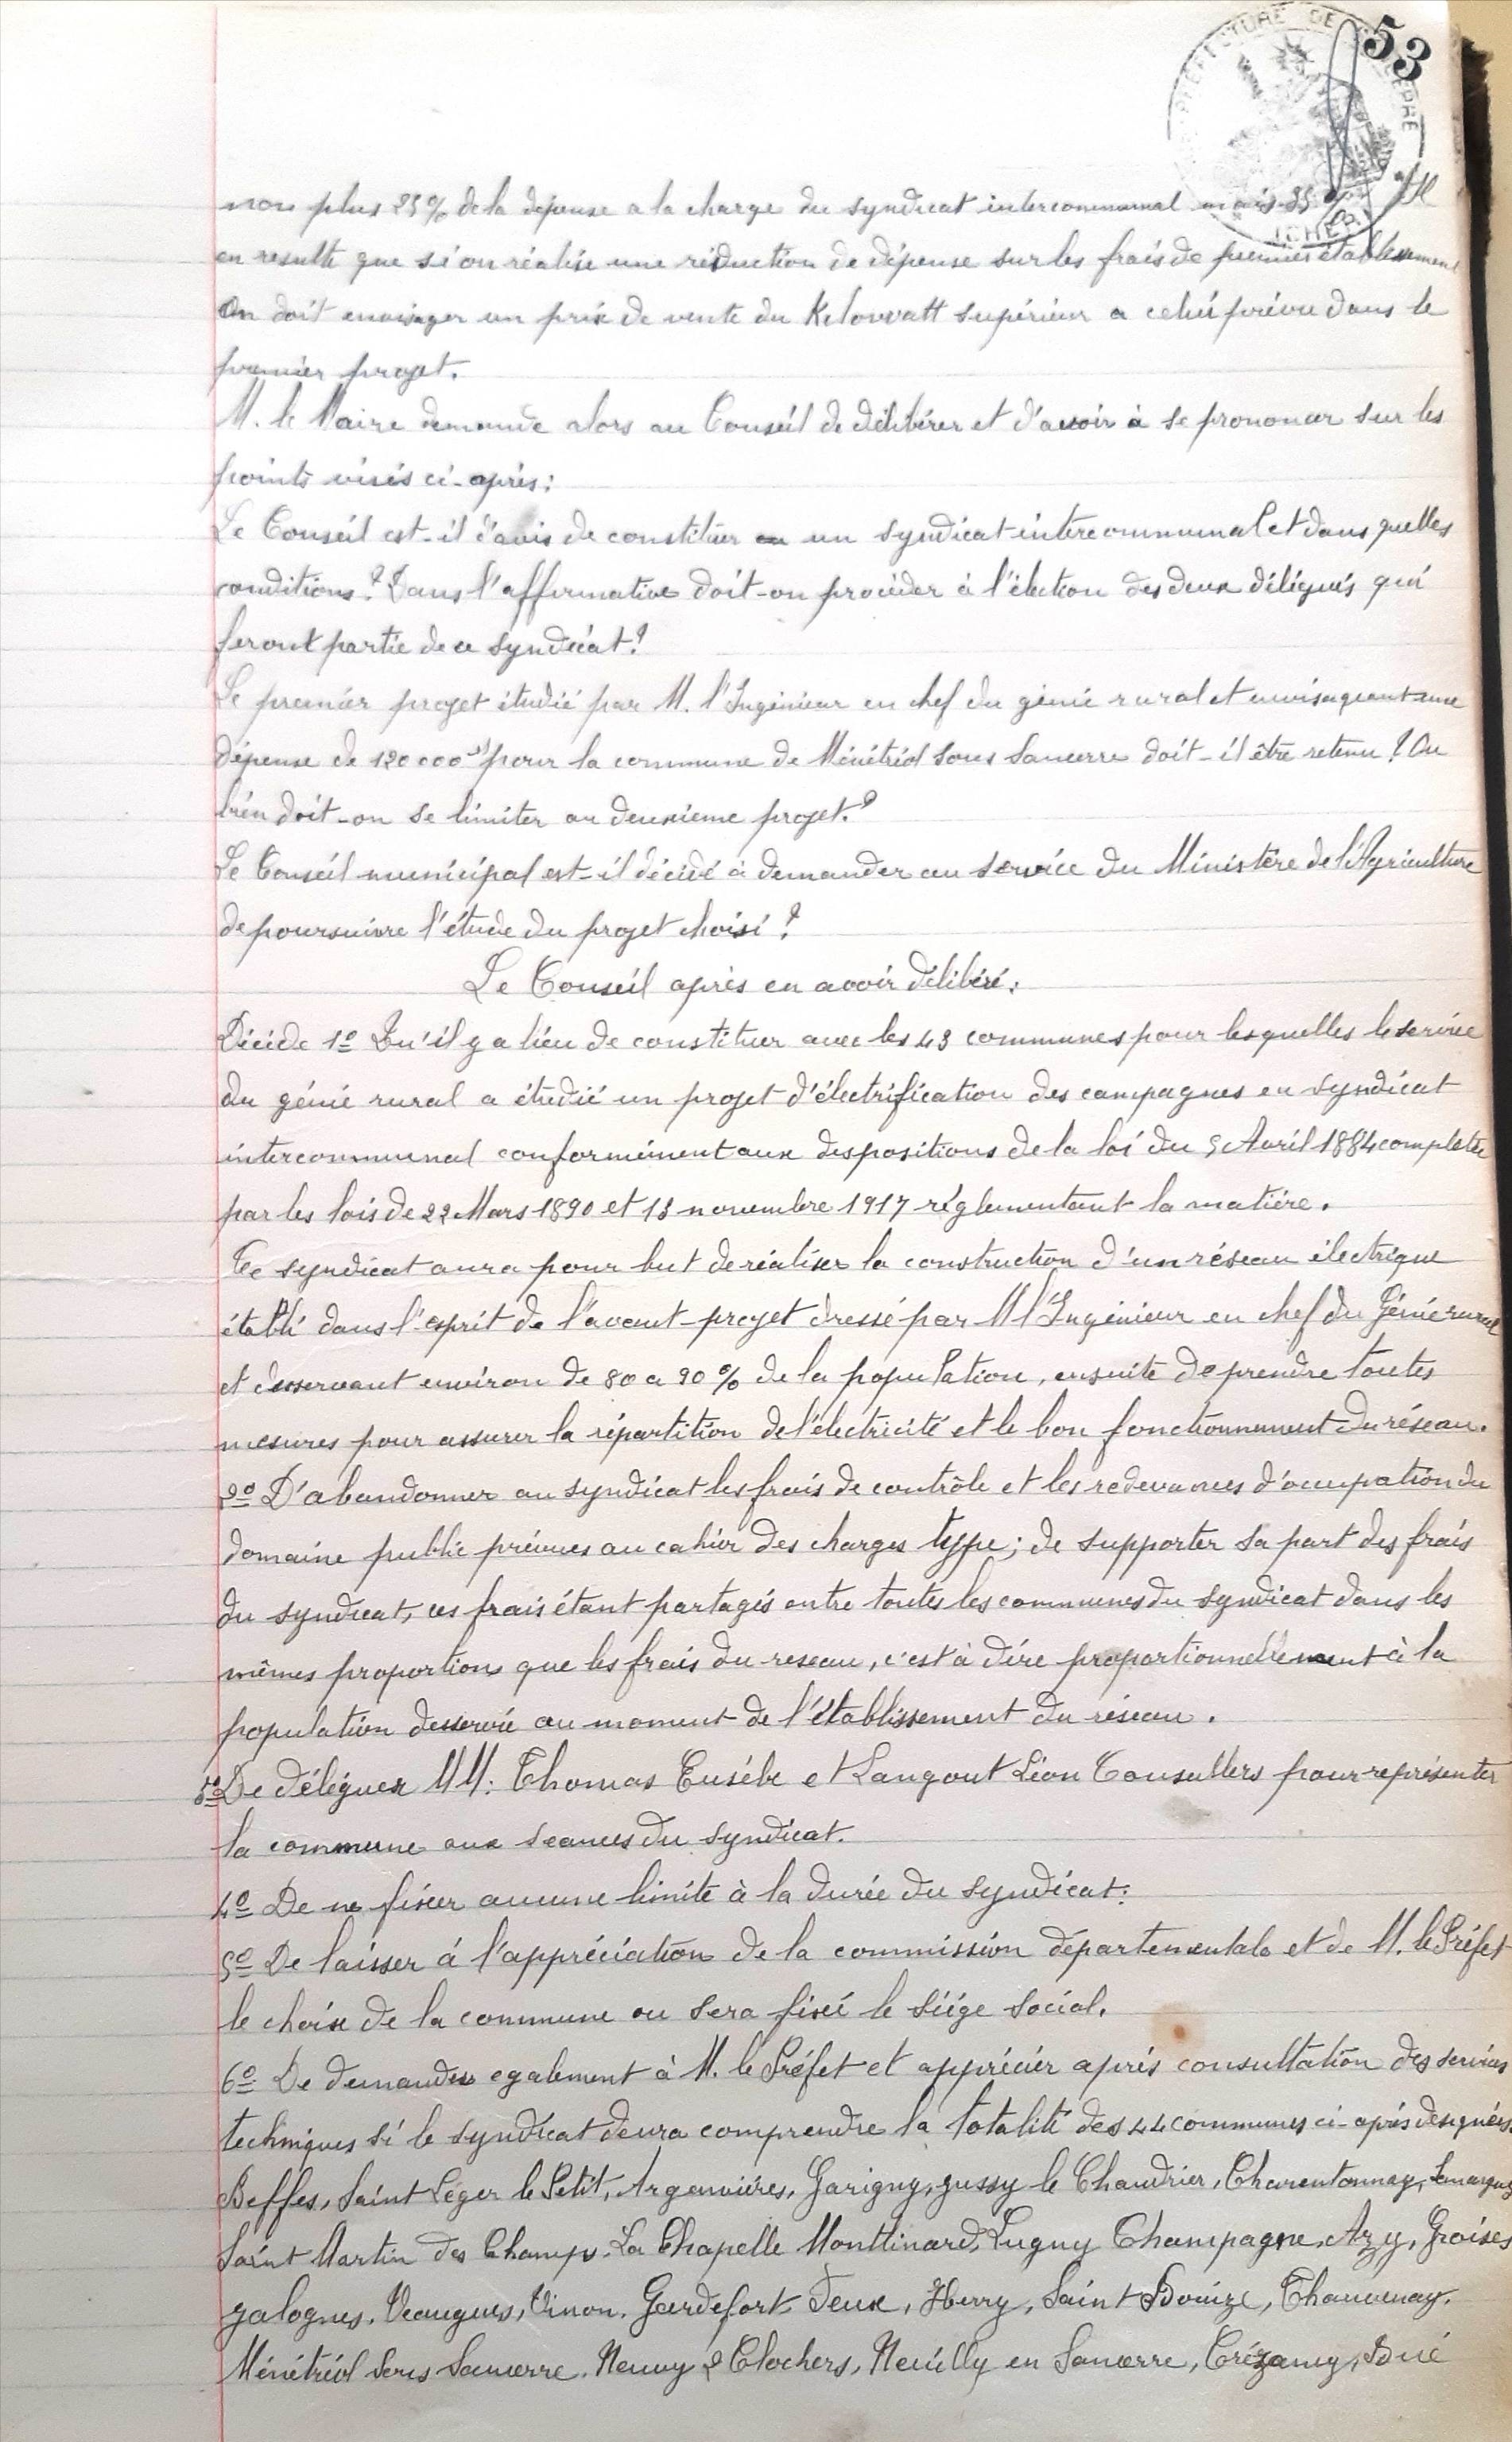 53
PREFECTURE DE
CHER
non plus 25% de la dépense a la charge du syndicat intercommunal mais 35 % Il
en resulte que si on réalise une réduction de dépense sur les frais de premier établissement
On doit envisager un prix de vente du Kilovvatt supérieur a celui prévu dans le
premier projet.
M. le Maire demande alors au Conseil de délibérer et d'avoir à se prononcer sur les
points visés ci-après:
Le Conseil est-il d'avis de constituer un syndicat intercommunal et dans quelles
conditions? Dans l'affirmative doit-on procéder à l'élection des deux délégués qui
feront partie de ce syndicat?
Le premier projet étudié par M. l'Ingénieur en chef du génie rural et envisageant une
dépense de 120000 pour la commune de Ménétréol sous Sancerre doit-il être retenu? Ou
bien doit-on se limiter au deuxieme projet?
Le Conseil municipal est-il décidé à demander au service du Ministère de l'Agriculture
de poursuivre l'étude du projet choisi?
Le Conseil après en avoir délibéré:
Décide 1º Qu'il y a lieu de constituer avec les 43 communes pour lesquelles le service
du génie rural a étudié un projet d'électrification des campagnes en syndicat
intercommunal conformément aux dispositions de la loi du 5 Avril 1884 complétée
par les lois de 22 Mars 1890 et 13 novembre 1917 réglementant la matière.
Ce syndicat aura pour but de réaliser la construction d'un réseau électrique
établi dans l'esprit de l'avant-projet dressé par M l'Ingénieur en chef du Génie rural
et desservant environ de 80 a 90 % de la population, ensuite de prendre toutes
mesures pour assurer la répartition de l'électricité et le bon fonctionnement du réseau.
2º D'abandonner au syndicat les frais de contrôle et les redevances d'occupation du
domaine public prévues au cahier des charges type; de supporter sa part des frais
du syndicat, ces frais étant partagés entre toutes les communes du syndicat dans les
mêmes proportions que les frais du reseau, c'est à dire proportionnellement à la
population desservie au moment de l'établissement du réseau.
3º De déléguer MM. Thomas Eusèbe et Langout Léon Conseillers pour représenter
la commune aux séances du syndicat.
4º De ne fixer aucune limite à la durée du syndicat.
5º De laisser à l'appréciation de la commission départementale et de M. le Préfet
le choix de la commune ou sera fixé le siége social.
6º De demander egalement à M. le Préfet et apprécier après consultation des services
techniques si le syndicat devra comprendre la totalité des 44 communes ci-après designées.
Beffes, Saint Léger le Petit, Argenvières, Garigny, Jussy le Chaudrier, Charentonnay,
Saint Martin des Champs. La Chapelle Montlinard, Lugny Champagne, Azy, Groises
Jalognes. Veaugues, Vinon. Gardefort Feux, Herry, Saint Bouize, Thauvenay.
Ménétréol sous Sancerre. Neuvy 2 Clochers, Neuilly en Sancerre, Crézancy, Bué